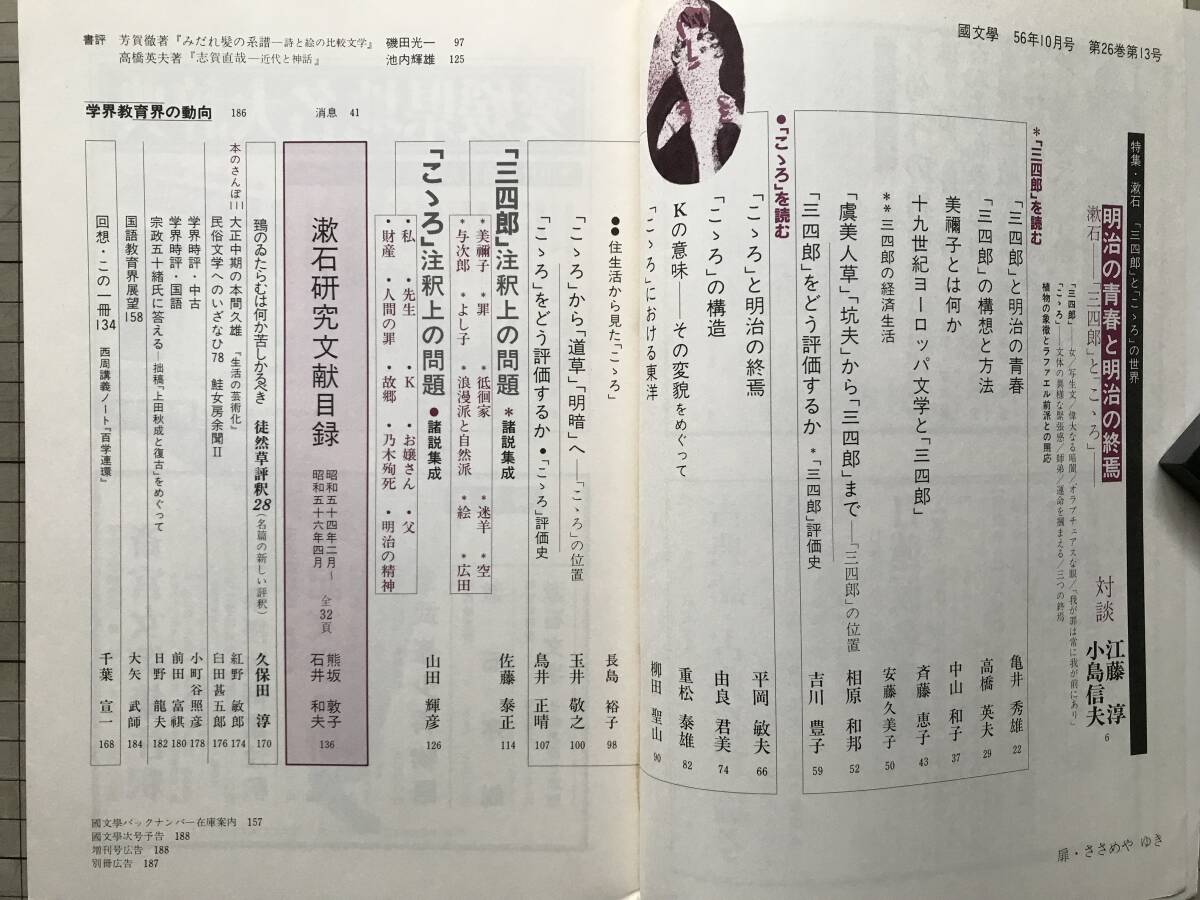 國文學　56年10月号　第26巻第13号
特集・漱石　「三四郎」と「こゝろ」の世界
明治の青春と明治の終焉
漱石――「三四郎」と「こゝろ」――
対談　江藤　淳
小島信夫　6
「三四郎」――女／写生文／偉大なる暗闇／オラプチュアスな眼／「我が罪は常に我が前にあり」
「こゝろ」――文体の異様な緊張感／師弟／運命を摑まえる／三つの終焉
植物の象徴とラファエル前派との照応
＊「三四郎」を読む
「三四郎」と明治の青春　亀井　秀雄　22
「三四郎」の構想と方法　高橋　英夫　29
美禰子とは何か　中山　和子　37
十九世紀ヨーロッパ文学と「三四郎」　斉藤　恵子　43
＊＊三四郎の経済生活　安藤久美子　50
「虞美人草」「坑夫」から「三四郎」まで――「三四郎」の位置　相原　和邦　52
「三四郎」をどう評価するか＊「三四郎」評価史　吉川　豊子　59
●「こゝろ」を読む
「こゝろ」と明治の終焉　平岡　敏夫　66
「こゝろ」の構造　由良　君美　74
Kの意味――その変貌をめぐって　重松　泰雄　82
「こゝろ」における東洋　柳田　聖山　90
●●住生活から見た「こゝろ」　長島　裕子　98
「こゝろ」から「道草」「明暗」へ――「こゝろ」の位置　玉井　敬之　100
「こゝろ」をどう評価するか●「こゝろ」評価史　鳥井　正晴　107
「三四郎」注釈上の問題＊諸説集成　佐藤　泰正　114
＊美禰子　＊罪　＊低徊家　＊迷羊　＊空
＊与次郎　＊よし子　＊浪漫派と自然派　＊絵　＊広田
「こゝろ」注釈上の問題●諸説集成　山田　輝彦　126
・私　・先生　・K　・お嬢さん　・父
・財産　・人間の罪　・故郷　・乃木殉死　・明治の精神
漱石研究文献目録　昭和五十四年二月～
昭和五十六年四月　全32頁　熊坂　敦子
石井　和夫　136
鵼のゐたらむは何か苦しかるべき　徒然草評釈28（名篇の新しい評釈）　久保田　淳　170
本のさんぽ111　大正中期の本間久雄　「生活の芸術化」　紅野　敏郎　174
民俗文学へのいざなひ78　鮭女房余聞II　臼田甚五郎　176
学界時評・中古　小町谷照彦　178
学界時評・国語　前田　富祺　180
宗政五十緒氏に答える――拙稿「上田秋成と復古」をめぐって　日野　龍夫　182
国語教育界展望158　大矢　武師　184
回想・この一冊134　西周講義ノート『百学連環』　千葉　宣一　168
書評　芳賀徹著『みだれ髪の系譜―詩と絵の比較文学』　磯田光一　97
高橋英夫著『志賀直哉―近代と神話』　池内輝雄　125
学界教育界の動向　186　消息　41
國文學バックナンバー在庫案内　157
國文學次号予告　188
増刊号広告　188
別冊広告　187
扉・ささめや ゆき